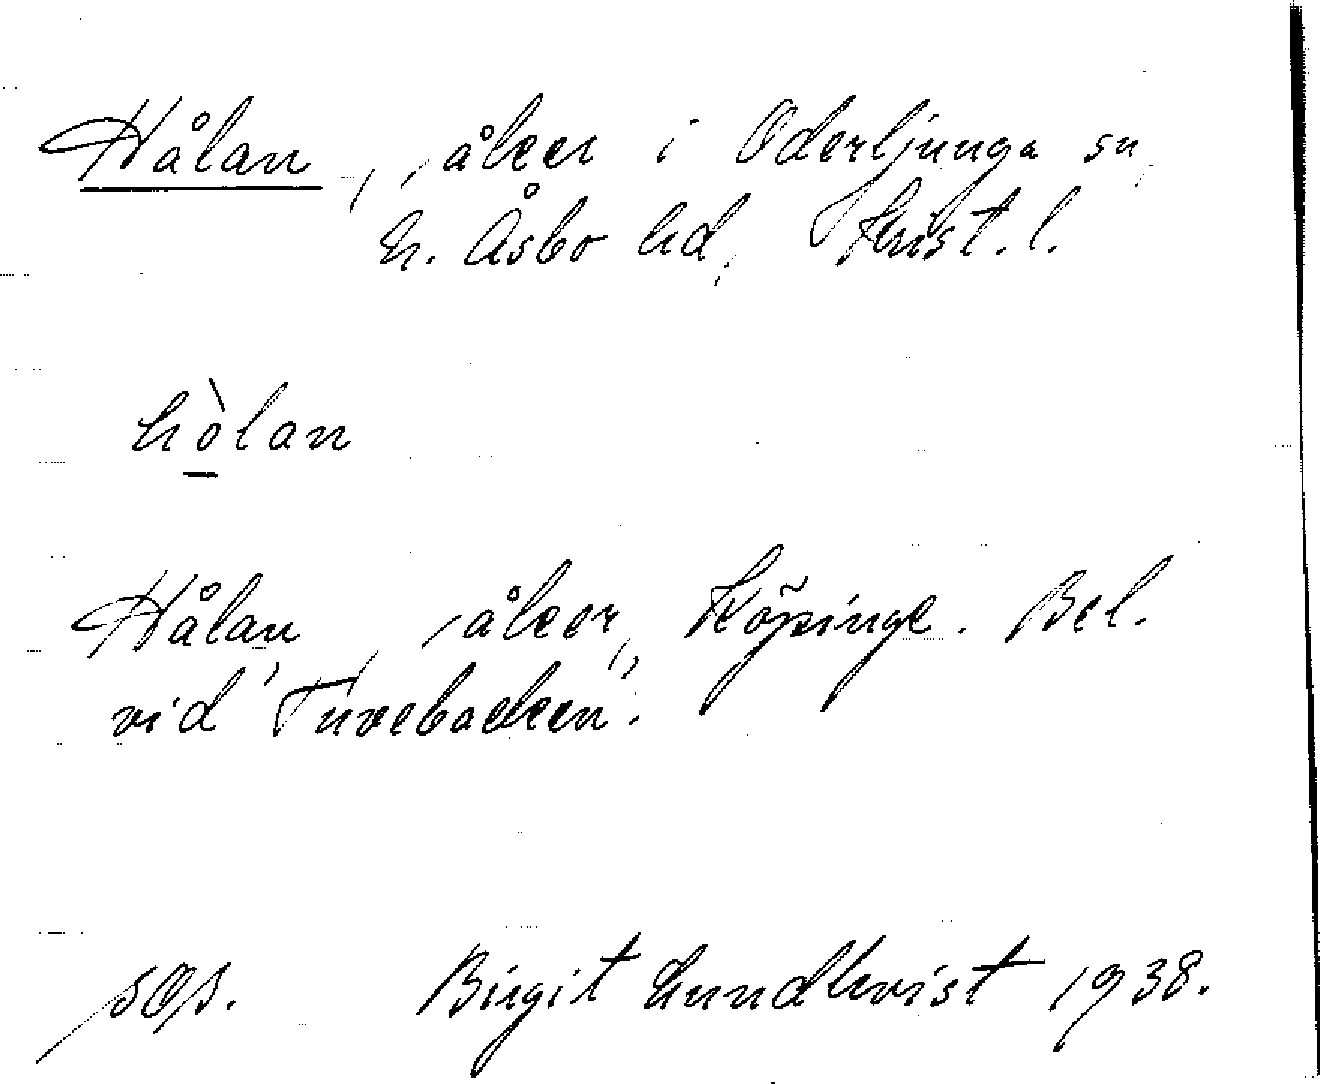 Hålan, åker i Oderljunga sn,
N. Åsbo hd, Krist. l.
hòlan
Hålan, åker, Köpinge. Bel.
vid Tuvebacken.
Birgit Lundkvist 1938.